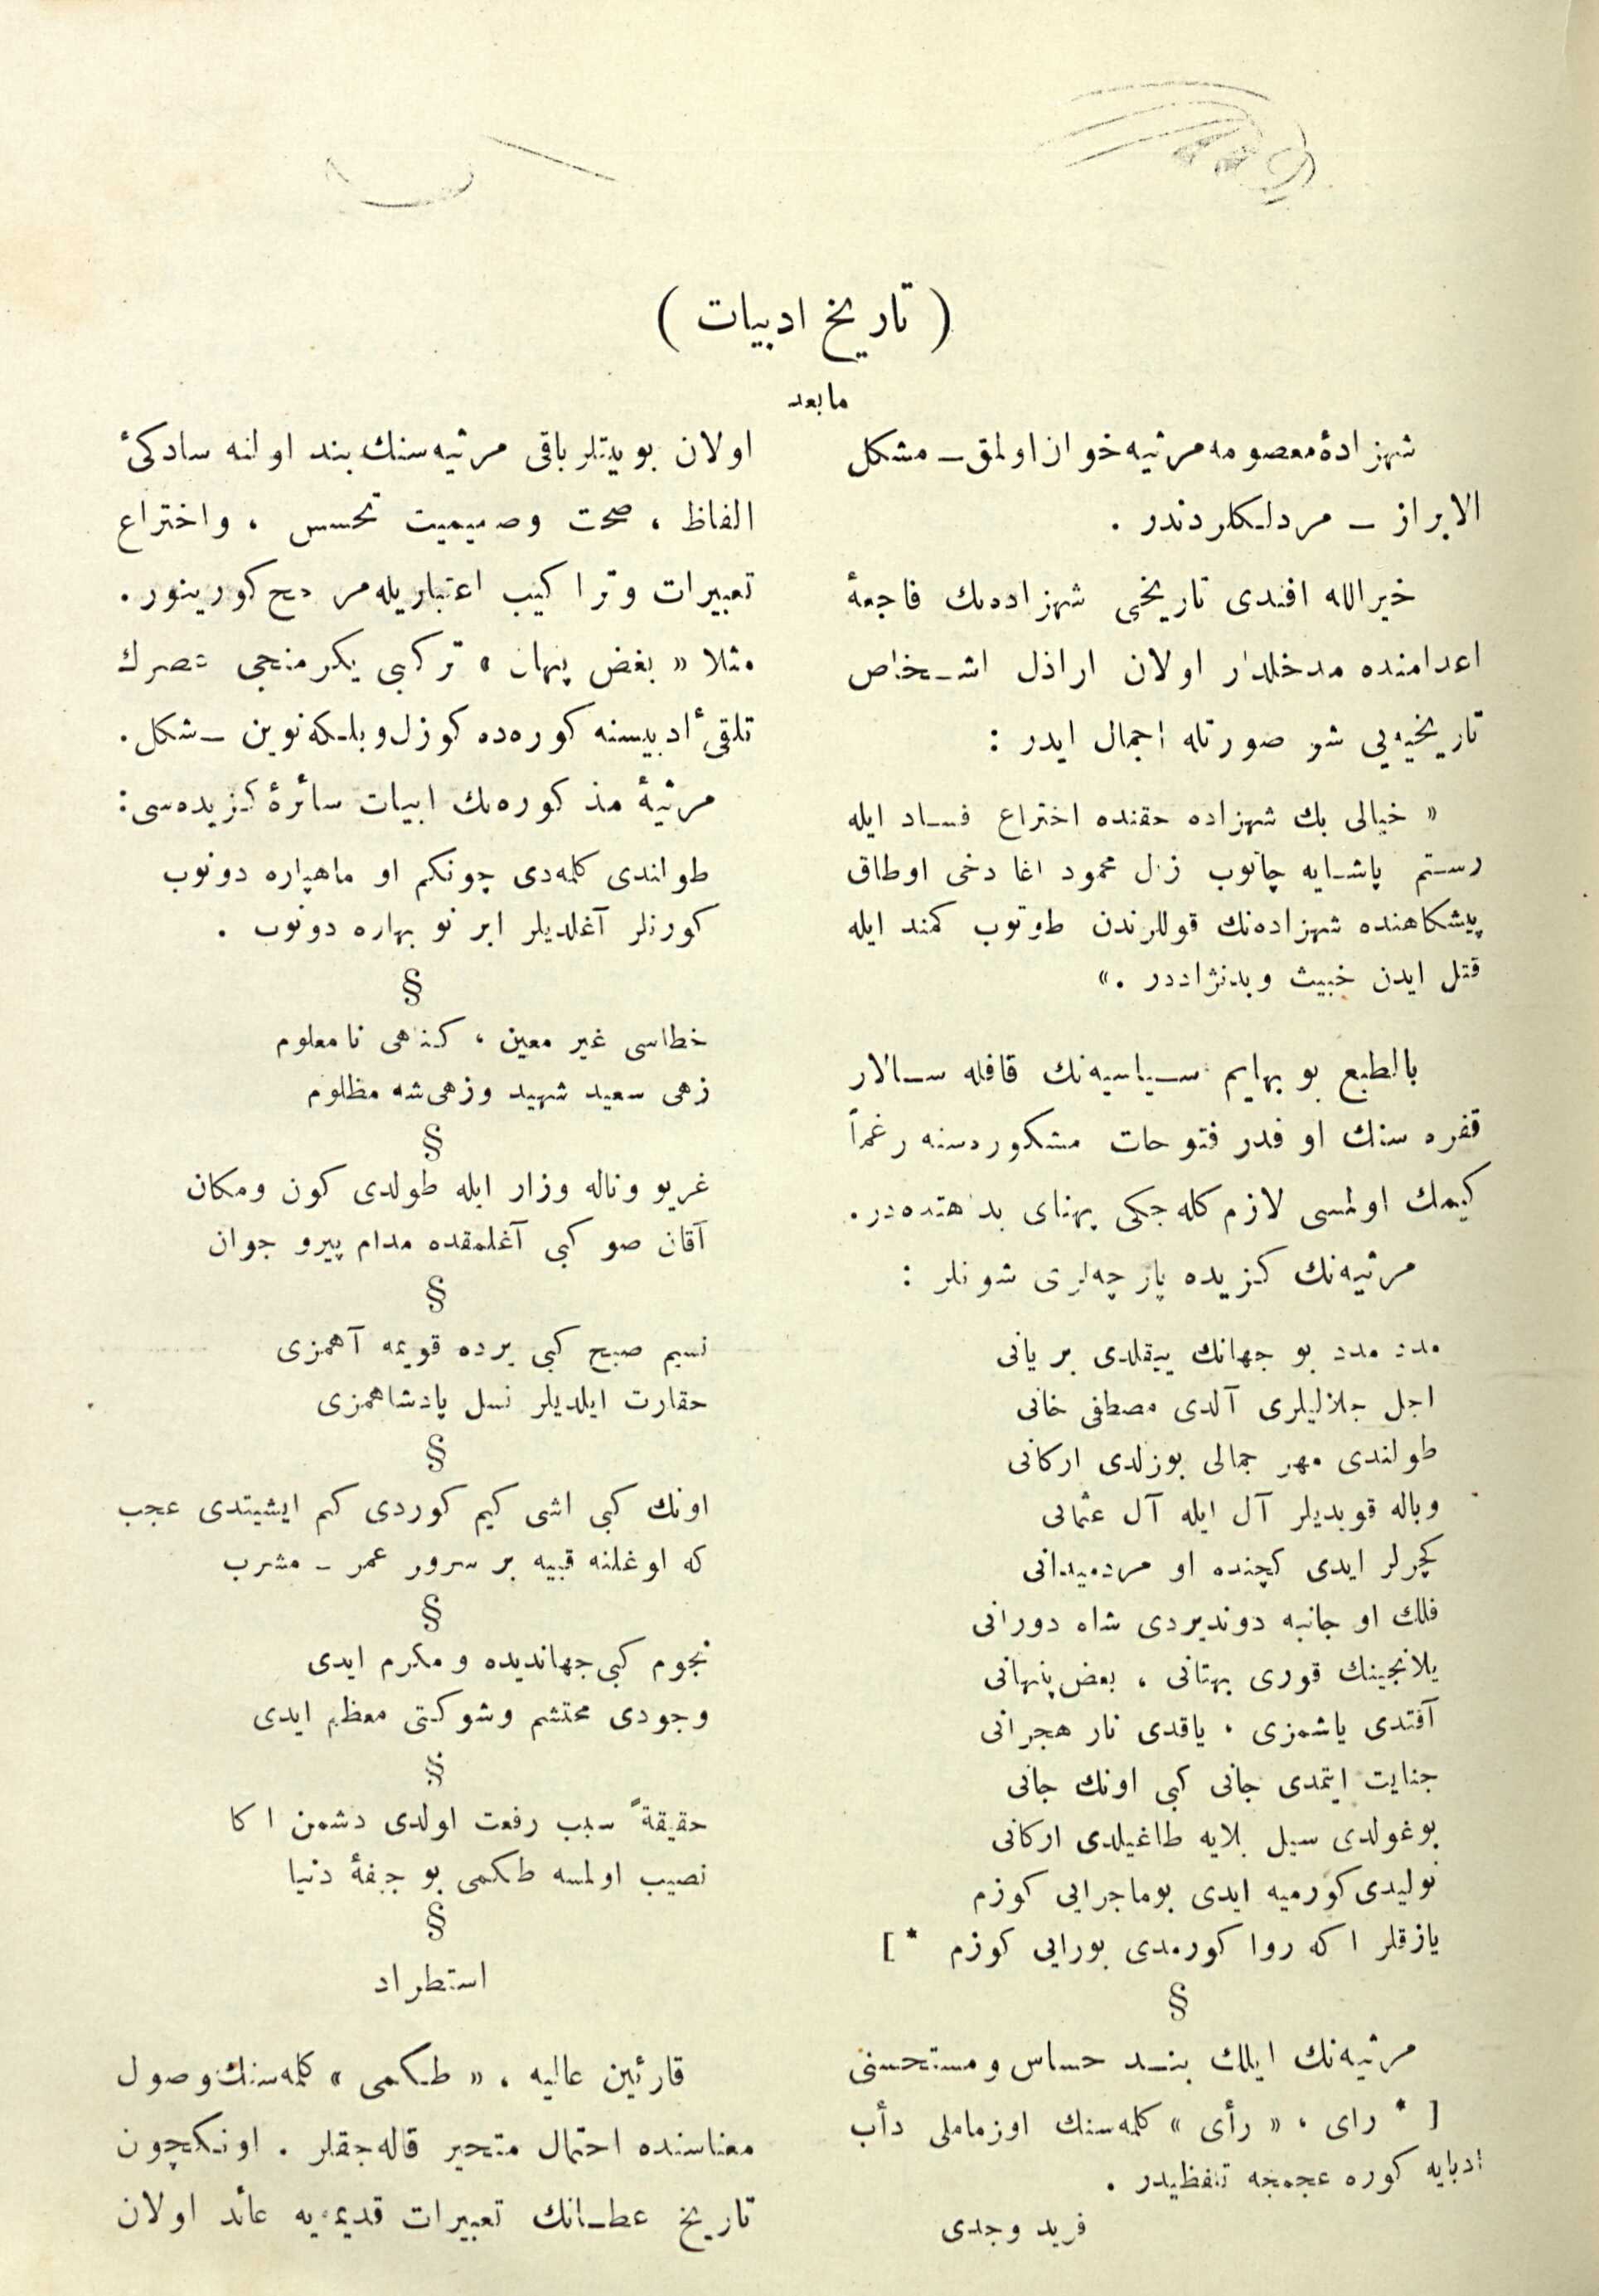 ( تاریخ ادبیات )
مابعد
شهزادهٔ معصومه مرثیه خوان اولمق ــ مشکل
الابراز ــ مردلکلردندر .
خیرالله افندی تاریخی شهزاده‌نك فاجعهٔ
اعدامنده مدخلدار اولان اراذل اشخاص
تاریخیه‌یی شو صورتله اجمال ایدر :
« خیالی بك شهزاده حقنده اختراع فساد ایله
رستم پاشایه چاتوب زال محمود اغا دخی اوطاق
پیشکاهنده شهزاده‌نك قوللرندن طوتوب کمند ایله
قتل ایدن خبیث و بدنژاددر . »
بالطبع بو بهایم سیاسیه‌نك قافله سالار
قفره سنك او قدر فتوحات مشکوره‌سنه رغماً
کیمك اولمسی لازم کله جکی پهنای بداهتده‌در .
مرثیه‌نك کزیده پارچه‌لری شونلر :
مدد مدد بو جهانك ییقلدی بر یانی
اجل جلالیلری آلدی مصطفی خانی
طولندی مهر جمالی بوزلدی ارکانی
وباله قویدیلر آل ایله آل عثمانی
کچرلر ایدی کچنده او مرد میدانی
فلك او جانبه دوندیردی شاه دورانی
یلانجینك قوری بهتانی ، بعض پنهانی
آقتدی یاشمزی ، یاقدی نار هجرانی
جنایت ایتمدی جانی کبی اونك جانی
بوغولدی سیل بلایه طاغیلدی ارکانی
نولیدی کورمیه ایدی بو ماجرایی کوزم
یازقلر اکه روا کورمدی بورایی کوزم *]
§
مرثیه‌نك ایلك بند حساس و مستحسنی
[* رای ، « رأی » کله‌سنك اوزماملی دأب
ادبایه کوره عجمجه تلفظیدر .
فرید وجدی
اولان بو بیتلر باقی مرثیه‌سنك بند اولنه سادکیٔ
الفاظ ، صحت و صمیمیت تحسس ، و اختراع
تعبیرات و تراکیب اعتباریله مرجح کورینور .
مثلا « بغض پنهان » ترکیبی یکرمنجی عصرك
تلقیٔ ادبیسنه کوره‌ده کوزل و بلکه نوین ــ شکل .
مرثیهٔ مذکوره‌نك ابیات سائرهٔ کزیده‌سی :
طولندی کلمه‌دی چونکم او ماهپاره دونوب
کورنلر آغلدیلر ابر نو بهاره دونوب .
§
خطاسی غیر معین ، کناهی نامعلوم
زهی سعید شهید و زهی شه مظلوم
§
غریو و ناله و زار ایله طولدی کون و مکان
آقان صو کبی آغلمقده مدام پیر و جوان
§
نسیم صبح کبی یرده قویمه آهمزی
حقارت ایلدیلر نسل پادشاهمزی
§
اونك کبی اشی کیم کوردی کم ایشیتدی عجب
که اوغلنه قییه بر سرور عمر ــ مشرب
§
نجوم کبی جهاندیده و مکرم ایدی
وجودی محتشم و شوکتی معظم ایدی
§
حقیقةً سبب رفعت اولدی دشمن اکا
نصیب اولمسه طکمی بو جیفهٔ دنیا
§
استطراد
قارئین عالیه ، « طکمی » کله‌سنك وصول
معناسنده احتمال متحیر قاله‌جقلر . اونکچون
تاریخ عطانك تعبیرات قدیمه‌یه عائد اولان